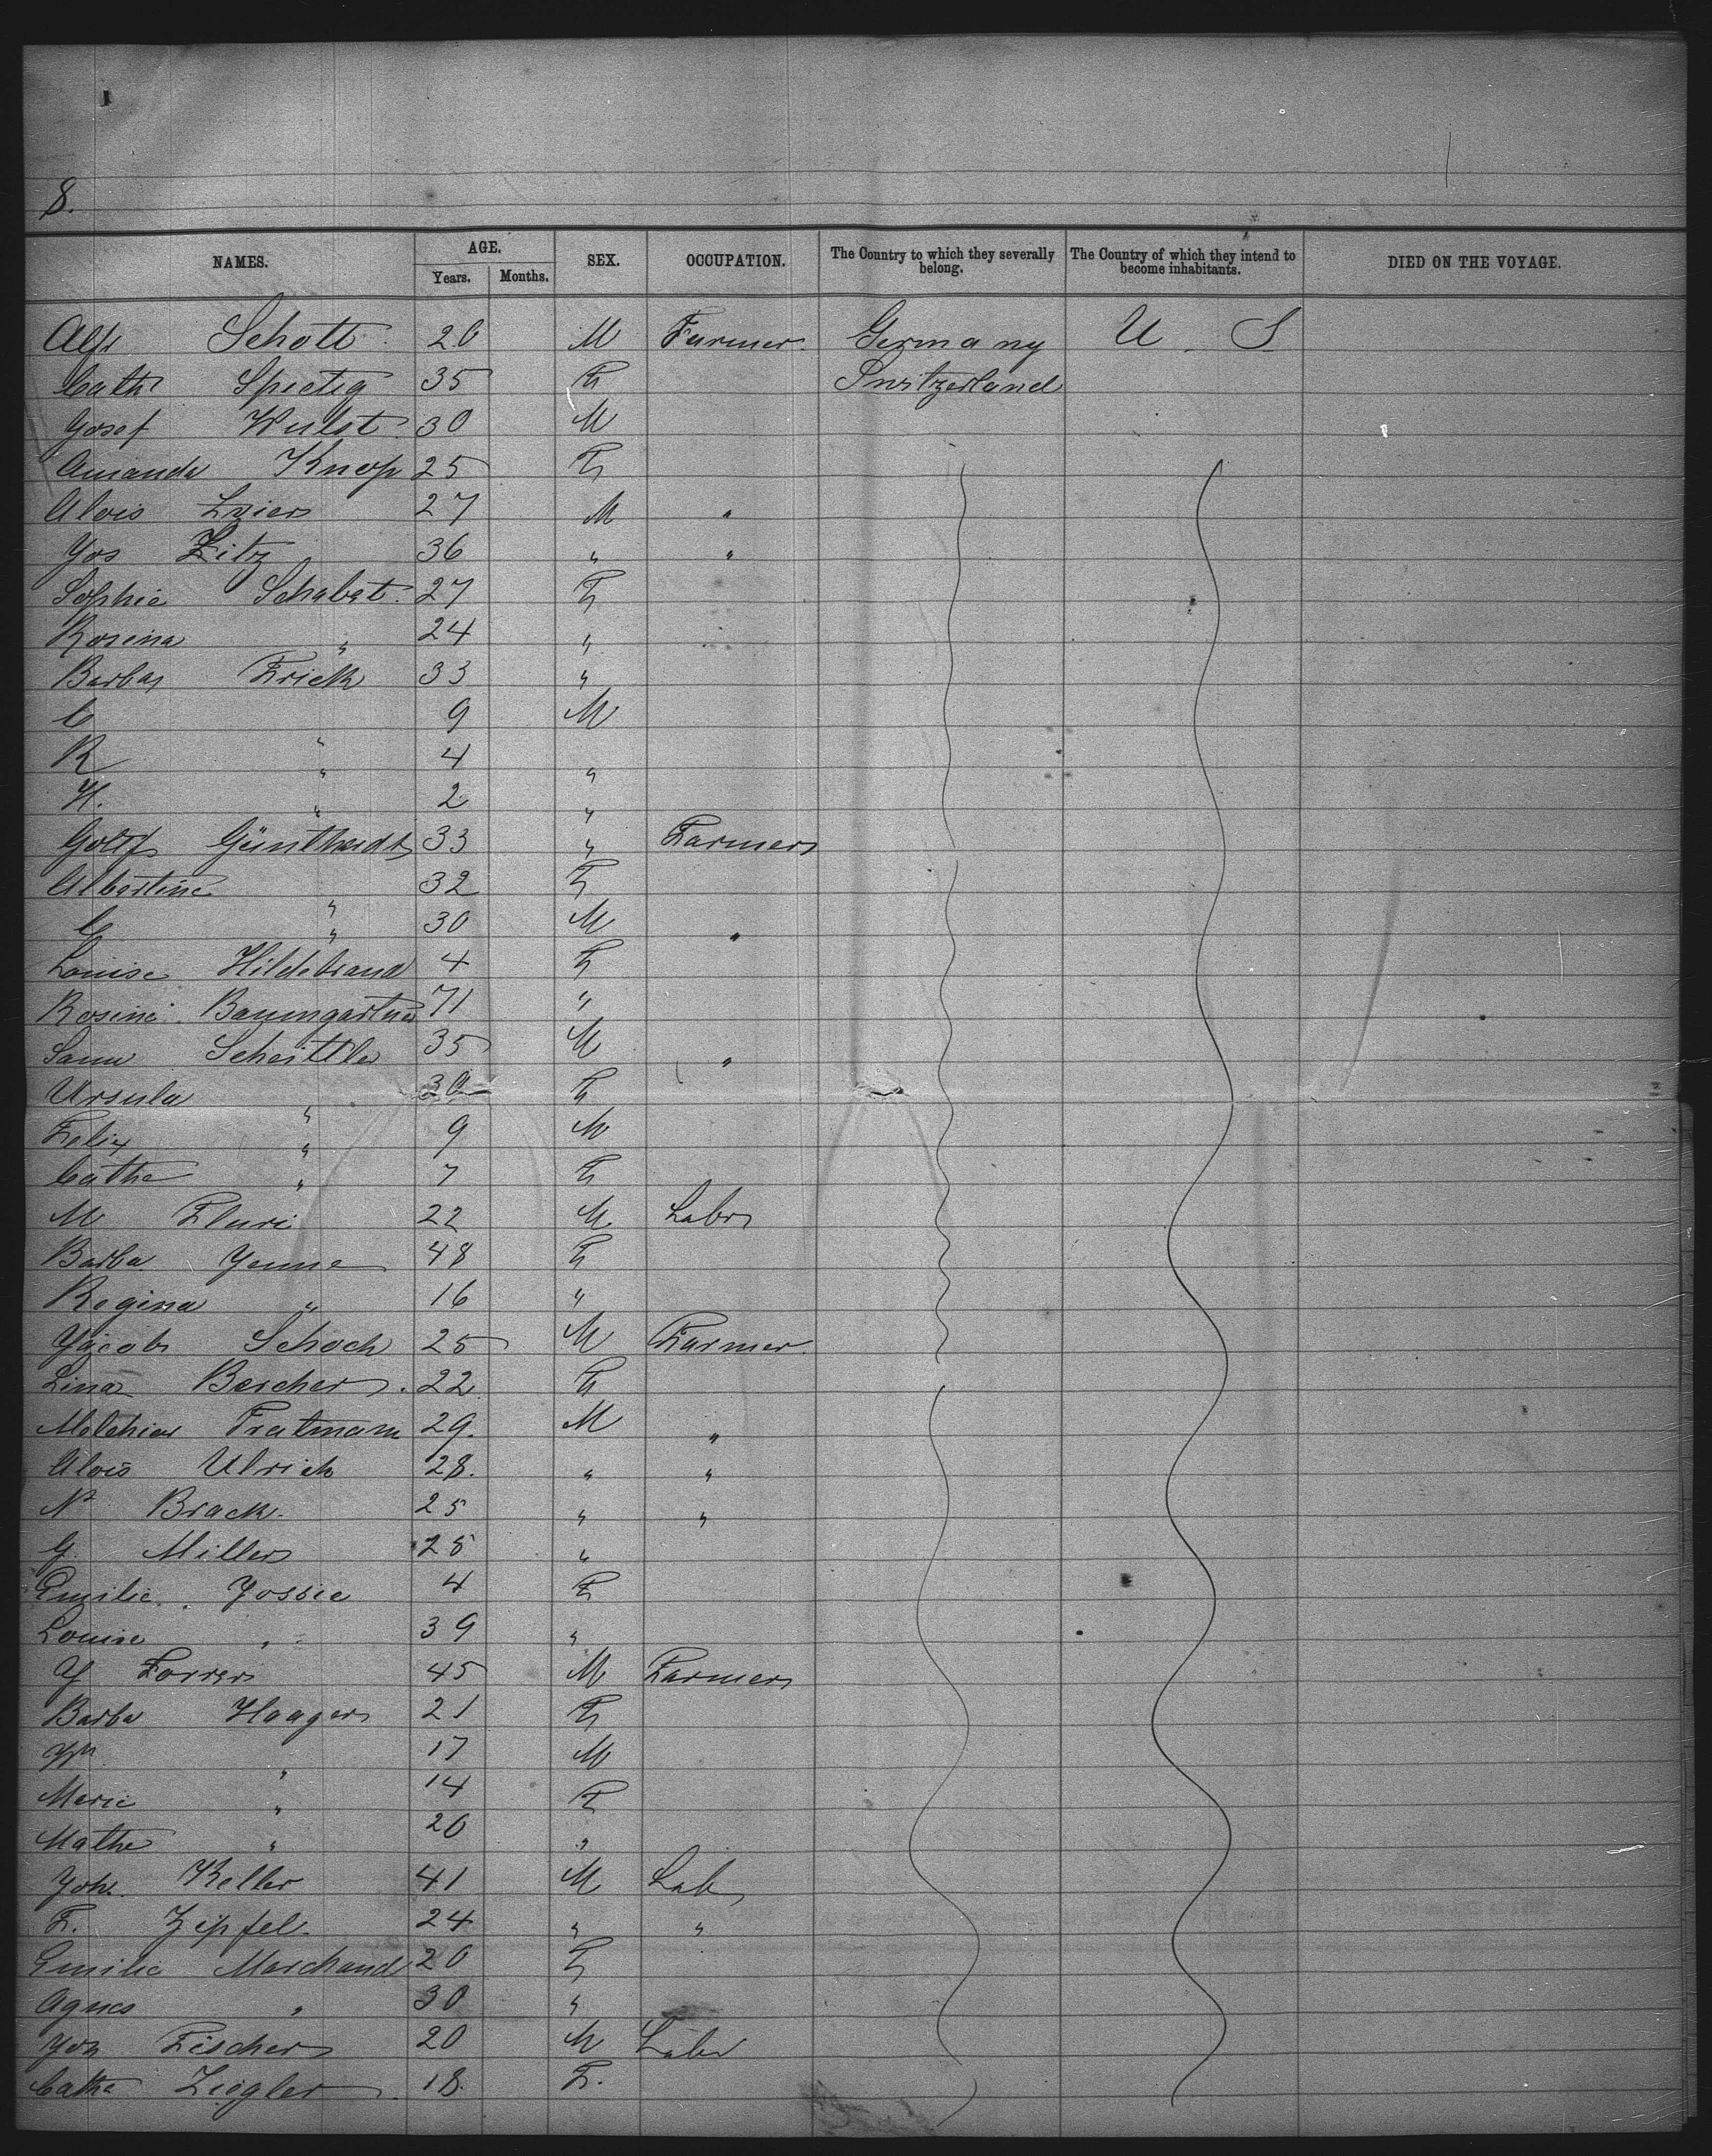 8.
NAMES. AGE. Years. Months. SEX. OCCUPATION. The Country to which they severally belong. The Country of which they intend to become inhabitants. DIED ON THE VOYAGE.
Alfr Schott 20 M Farmer. Germany U. S
Cath Spectig 35 F Switzerland
Josef Wulst 30 M
Amanda Knop 25 F
Alois 27 M "
Jos Zitz 36 " "
Sophie Schabet. 27 F
Rosina " 24 "
Barba Frick 33 "
C " 9 M
R " 4 "
H. " 2 "
Günthardt 33 " Farmer
Albertine " 32 F
C " 30 M "
Louise Hildebrand 4 F
Rosine Baumgartner 71 "
Sam Scheittler 35 M "
Ursula " 30 F
Felix " 9 M
Cathe " 7 F
M Fluri 22 M Labr
Barba Jenne 48 F
Regina " 16 "
Jacob Schoch 25 M Farmer.
Lina Bercher. 22 F
Melchior Tratmann 29. M "
Alois Ulrich 28. " "
N Brack. 25 " "
G. Miller 25 "
Emilie. Jossie 4 F
Louise " 39 "
J Forrer 45 M Farmer
Barba Haager 21 F
" 17 M
Marie " 14 F
Mathe " 20 "
Joh. Keller 41 M Lab
F. Zipfel. 24 " "
Emilie Marchand 20 F
Agnes " 30 "
Joh Fischer 20 M Labr
Cathe Ziegler 18. F.